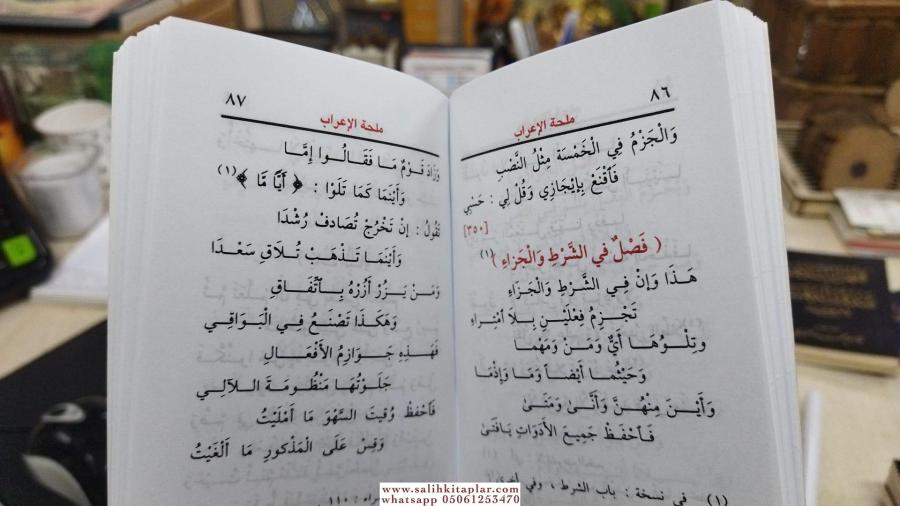 ٨٦
ملحة الإعراب
وَالْجَزْمُ فِي الْخَمْسَةِ مِثْلُ النَّصْبِ
فَاقْنَعْ بِإِيجَازِي وَقُلْ لِي : حَسْبِي
[٣٥٠]
( فَصْلٌ في الشَّرْطِ وَالْجَزاءِ )(١)
هَـذَا وَإِنْ فِي الشَّرْطِ وَالْجَزَاءِ
تَجْزِمُ فِعْلَيْنِ بِلَا امْتِرَاءِ
وَتِلْـوُهَـا أَيٌّ وَمَنْ وَمَهْمَـا
وَحَيْثُمَـا أَيْضـاً وَمَا وَإِذْمَا
وَأَيْـنَ مِنْهُـنَّ وَأَنَّـىٰ وَمَتَـىٰ
فَـاحْفَـظْ جَمِيعَ الأَدَوَاتِ يَـا فَتَـىٰ
(١) في نسخة : باب الشرط ، وفي أخرى
٨٧
ملحة الإعراب
وَزَادَ قَـوْمٌ مَـا فَقَـالُـوا إِمَّـا
وَأَيْنَمَا كَمَا تَلَوْا : ﴿ أَيًّا مَّا ﴾(١)
تَقُولُ : إِنْ تَخْرُجْ تُصَادِفْ رُشْدَا
وَأَيْنَمَـا تَـذْهَـبْ تُـلَاقِ سَعْـدَا
وَمَـنْ يَـزُرْ أَزُرْهُ بِـاتِّفَـاقِ
وَهَكَـذَا تَصْنَعُ فِـي الْبَـوَاقِي
فَهَـذِهِ جَـوَازِمُ الأَفْعَـالِ
جَلَوْتُهَا مَنْظُـومَةَ الـلَّآلِي
فَاحْفَظْ وُقِيتَ السَّهْوَ مَا أَمْلَيْتُ
وَقِسْ عَلَى الْمَذْكُورِ مَا أَلْغَيْتُ
١١٠
www.salihkitaplar.com
whatsapp 05061253470